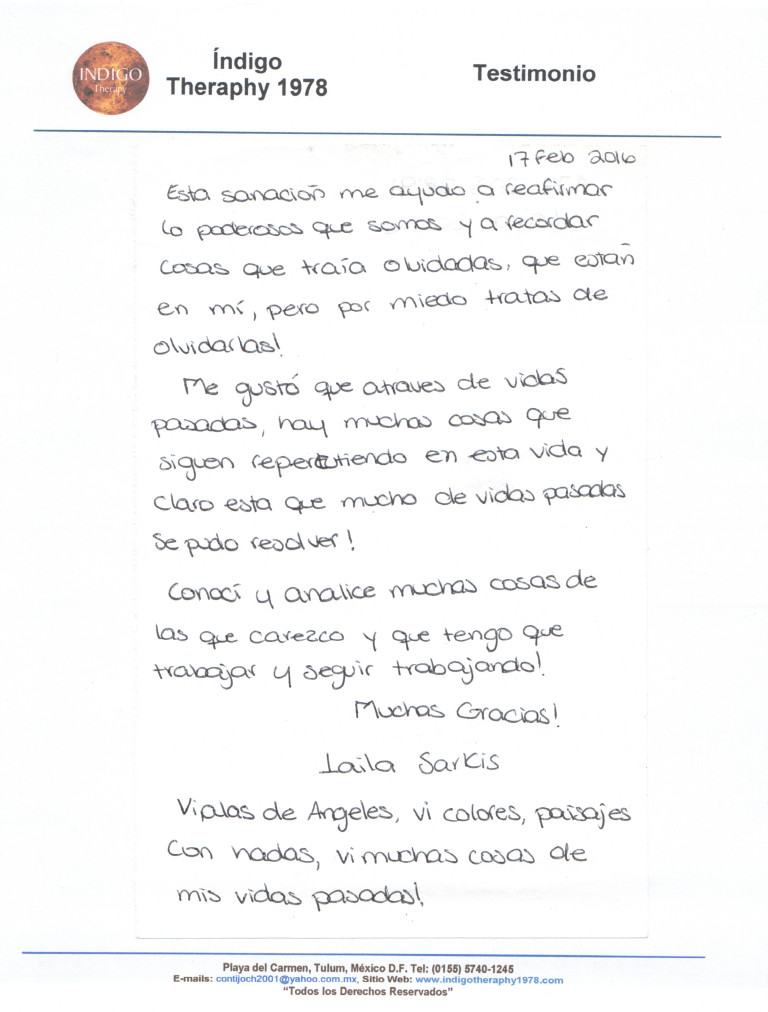 INDIGO
Therapy
Índigo
Theraphy 1978
Testimonio
17 Feb 2016
Esta sanación me ayudo a reafirmar
lo poderosos que somos y a recordar
cosas que traía olvidadas, que están
en mí, pero por miedo tratas de
olvidarlas!
Me gustó que atraves de vidas
pasadas, hay muchas cosas que
siguen repercutiendo en esta vida y
claro esta que mucho de vidas pasadas
se pudo resolver!
Conocí y analice muchas cosas de
las que carezco y que tengo que
trabajar y seguir trabajando!
Muchas Gracias!
Laila Sarkis
Vi alas de Angeles, vi colores, paisajes
con hadas, vi muchas cosas de
mis vidas pasadas!
Playa del Carmen, Tulum, México D.F. Tel: (0155) 5740-1245
E-mails: contijoch2001@yahoo.com.mx, Sitio Web: www.indigotheraphy1978.com
"Todos los Derechos Reservados"